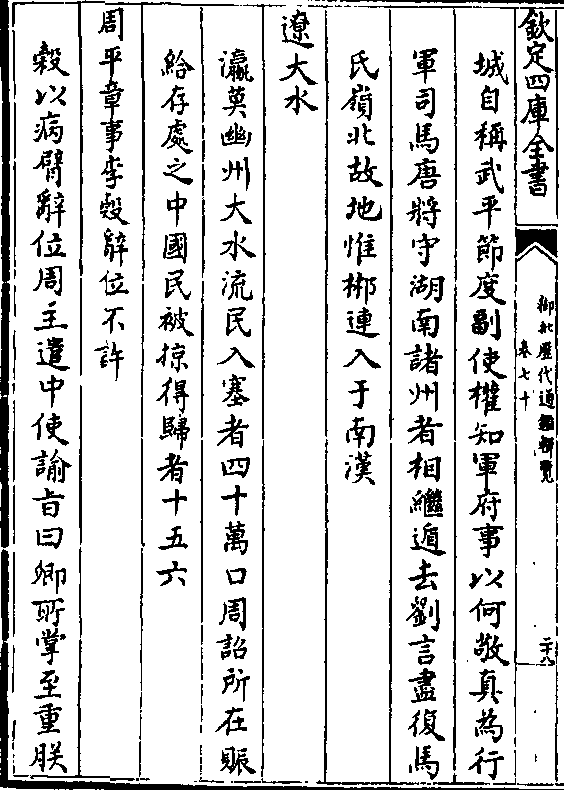 欽定四庫全書
御批歷代通鑑輯覽
卷七十
二十八
城自稱武平節度副使權知軍府事以何敬真為行
軍司馬唐將守湖南諸州者相繼遁去劉言盡復馬
氏嶺北故地惟郴連入于南漢
遼大水
瀛莫幽州大水流民入塞者四十萬口周詔所在賑
給存處之中國民被掠得歸者十五六
周平章事李榖辭位不許
榖以病臂辭位周主遣中使諭旨曰卿所掌至重朕